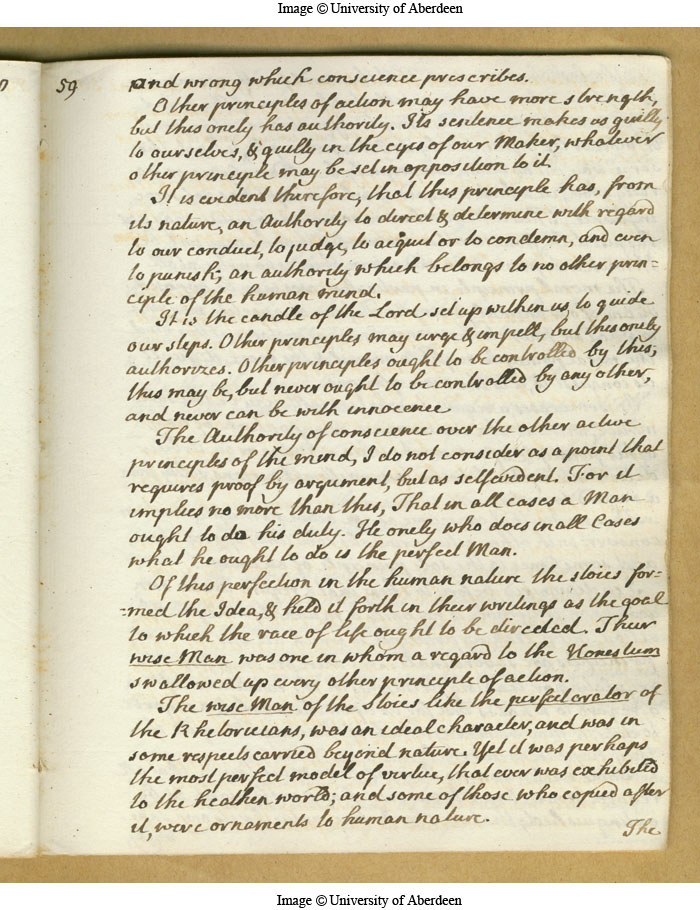 Image © University of Aberdeen
59
and wrong which conscience prescribes.
Other principles of action may have more strength,
but this onely has authority. Its sentence makes us guilty
to ourselves, & guilty in the eyes of our Maker, whatever
other principle may be set in opposition to it.
It is evident therefore, that this principle has, from
its nature, an Authority to direct & determine with regard
to our conduct, to judge, to acquit or to condemn, and even
to punish; an authority which belongs to no other prin=
ciple of the human mind.
It is the candle of the Lord set up within us, to guide
our steps. Other principles may urge & impell, but this onely
authorizes. Other principles ought to be controlled by this;
this may be, but never ought to be controlled by any other,
and never can be with innocence
The Authority of conscience over the other active
principles of the mind, I do not consider as a point that
requires proof by argument, but as selfevident. For it
implies no more than this, That in all cases a Man
ought to do his duty. He onely who does in all Cases
what he ought to do is the perfect Man.
Of this perfection in the human nature the stoics for=
=med the Idea, & held it forth in their writings as the goal
to which the race of life ought to be directed. Their
wise Man was one in whom a regard to the Honestum
swallowed up every other principle of action.
The wise Man of the Stoics like the perfect orator of
the Rhetoricians, was an ideal character, and was in
some respects carried beyond nature. Yet it was perhaps
the most perfect model of virtue, that ever was exhibited
to the heathen world; and some of those who copied after
it, were ornaments to human nature.
The
Image © University of Aberdeen